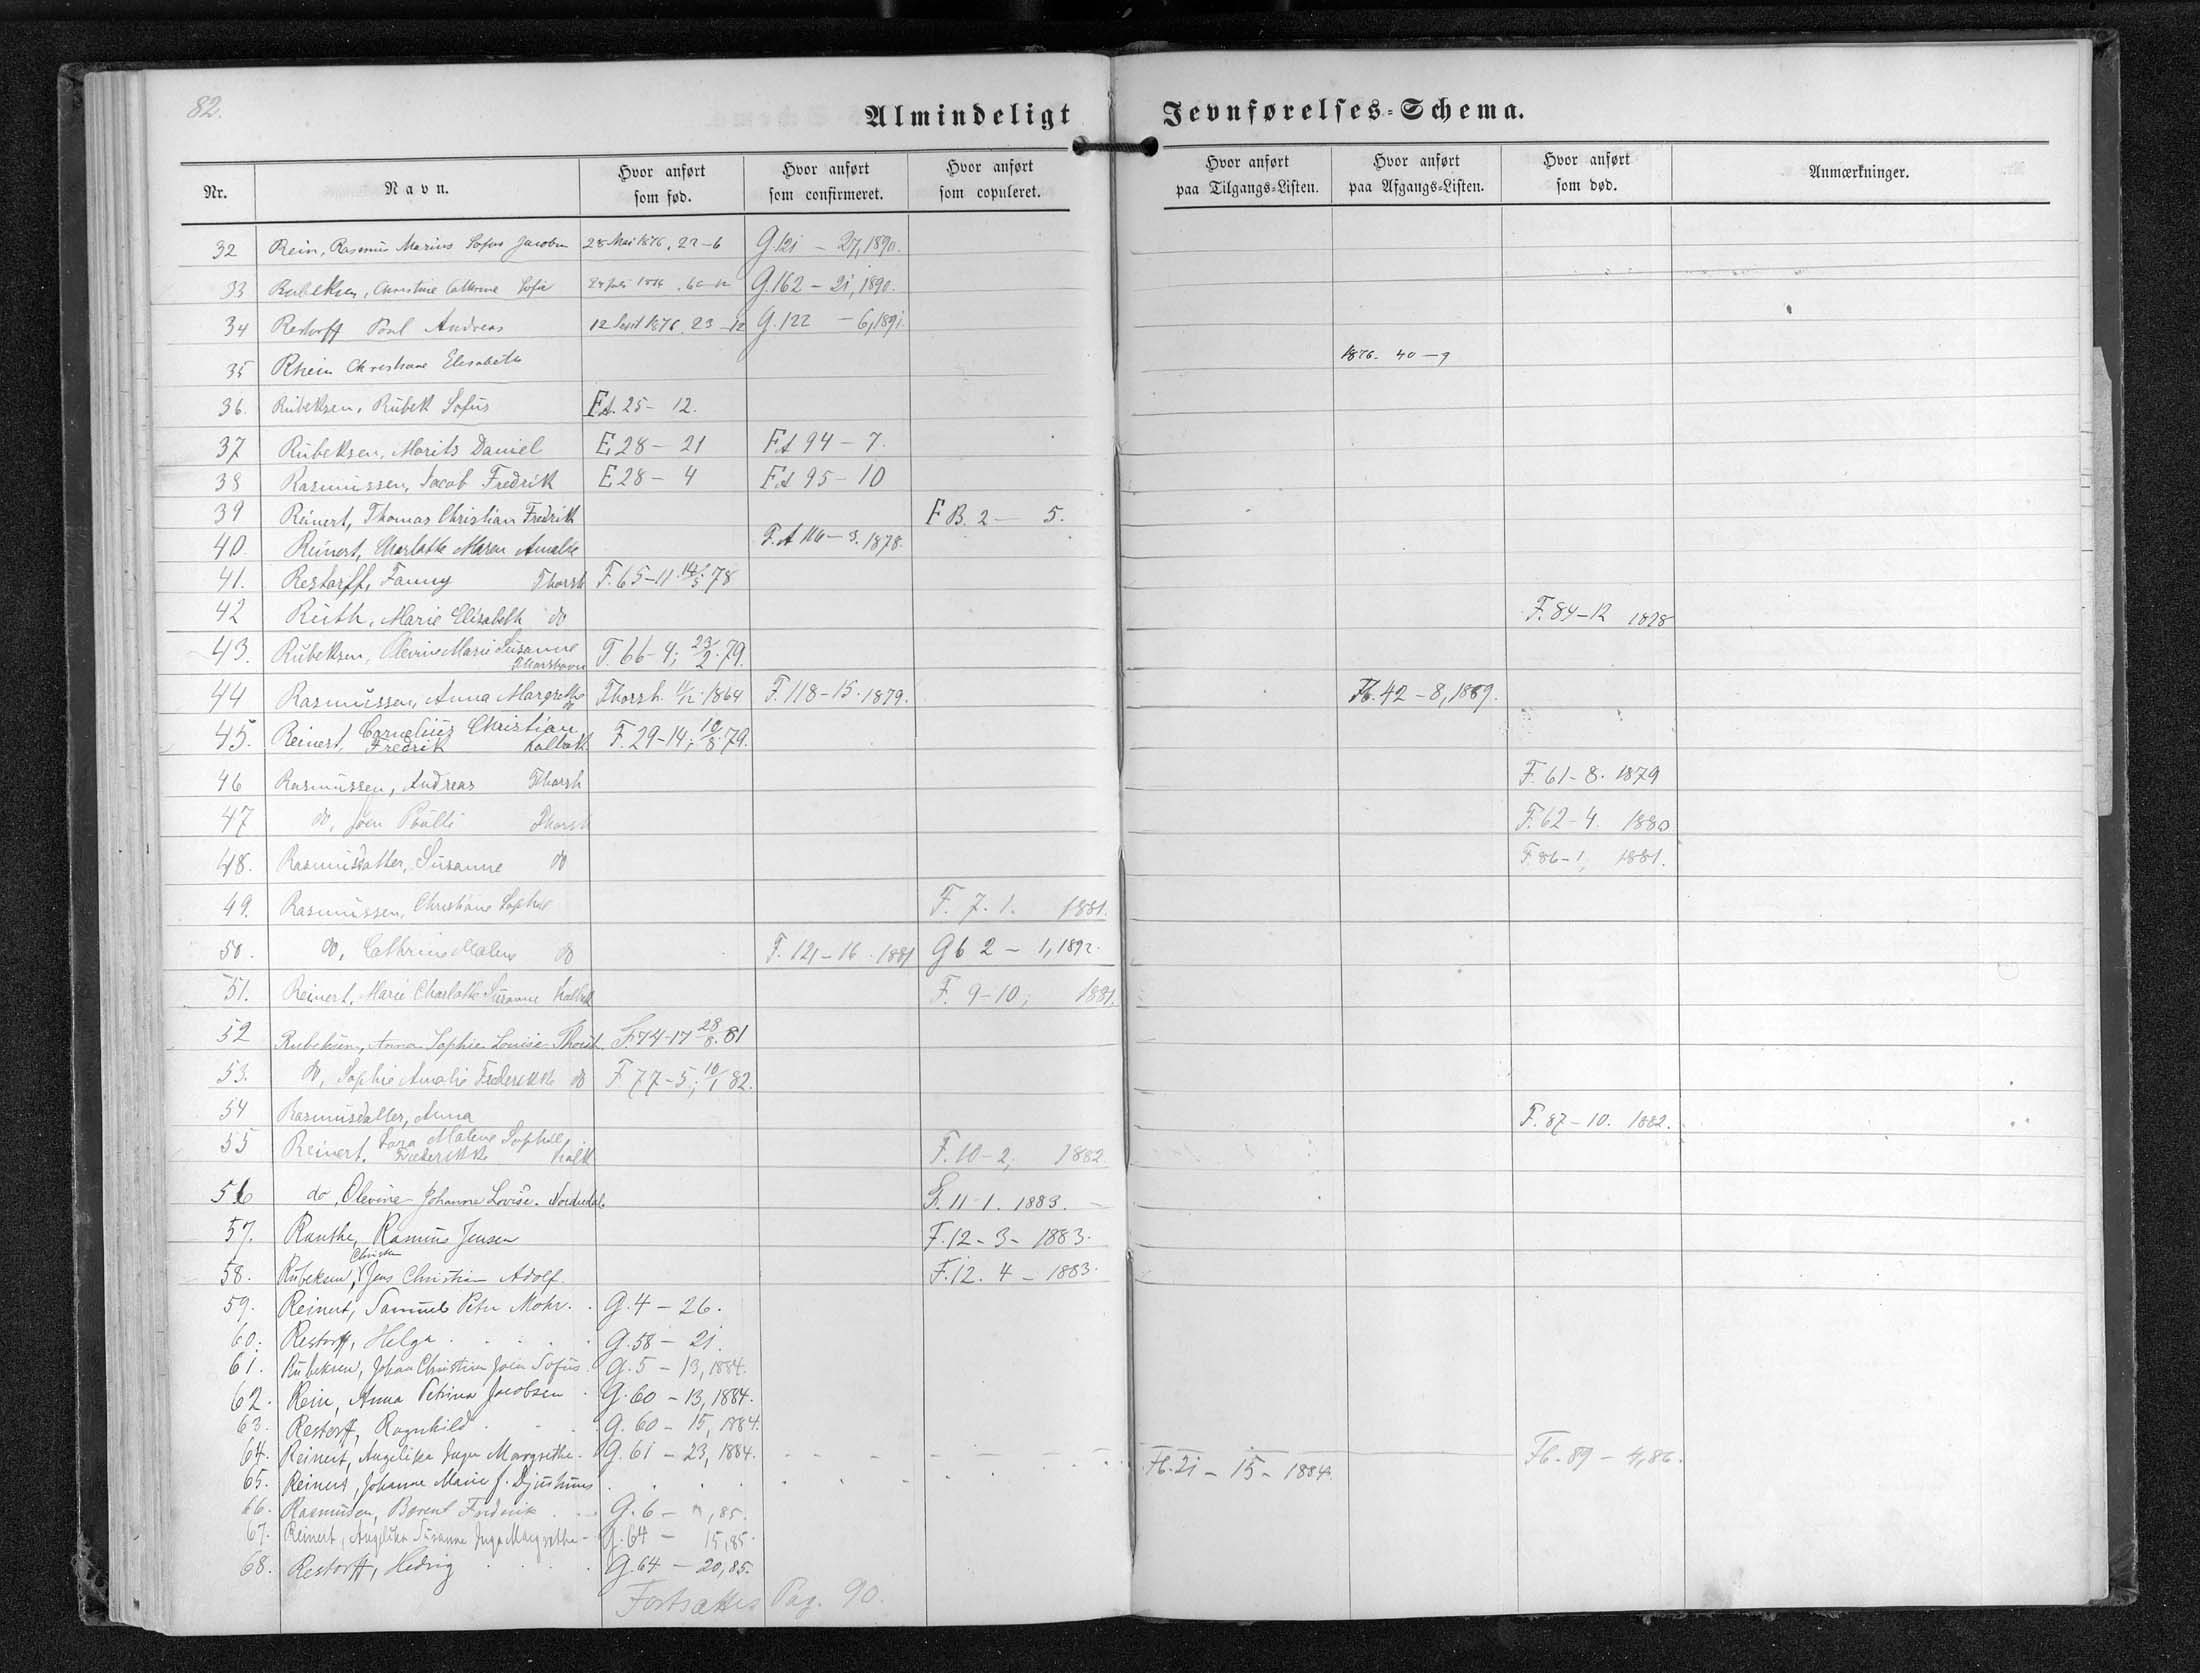 82.
Almindeligt Jevnførelses-Schema.
Nr. Navn. Hvor anført som fød. Hvor anført som confirmeret. Hvor anført som copuleret. Hvor anført paa Tilgangs-Listen. Hvor anført paa Afgangs-Listen. Hvor anført som død. Anmærkninger.
32 Rein, Rasmus Marius Sofus Jacobsen 28 Mai 1876, 22-6 G.121 - 27, 1890.
33 Rubeksen, Christine Cathrine Sofie G.162 - 21, 1890.
34 Restorff Poul Andreas 12 Sept 1876. 23-12 G.122 - 6, 1891
35 Rhein Christiane Elisabeth 1876. 40-9
36. Rubeksen, Rubek Sofus FA. 25- 12.
37 Rubeksen, Morits Daniel E 28 - 21 FA 94 - 7.
38 Rasmussen, Jacob Fredrik E 28 - 4 FA 95 - 10
39 Reinert, Thomas Christian Fredrik F B. 2 - 5.
40. Reinert, Charlotte Maren Amalie F.A 116 - 3. 1878.
41. Restorff, Fanny Thorsh F. 65-11. 14/5 78
42 Ruth, Marie Elisabeth do F. 84-12 1878
43. Rubeksen, Olevine Marie Susanne Thorshavn F. 66-4; 23/2 79.
44 Rasmussen, Anna Margrethe do Thorsh. 11/12 1864 F. 118-15. 1879. Fb. 42 - 8, 1889.
45. Reinert, Cornelius Christian Fredrik Kalbak F. 29-14; 10/8 79.
46 Rasmussen, Andreas Thorsh F. 61-8. 1879
47 do, Joen Poulli Thorsh F. 62-4. 1880
48. Rasmusdatter, Susanne do F. 86-1, 1881.
49. Rasmussen, Christiane Sophie F. 7. 1. 1881.
50. do, Cathrine Malene do F. 121-16. 1881 Gb 2 - 1, 1892.
51. Reinert, Marie Charlotte Susanne Kalbak F. 9-10; 1881.
52 Rubeksen, Anna Sophie Louise Thorsh. F. 74-17 28/8 81
53. do, Sophie Amalie Frederikke do F. 77-5; 10/1 82.
54 Rasmusdatter, Anna F. 87-10. 1882.
55 Reinert, Sara Malene Sophie Frederikke Kalbk F. 10-2; 1882.
56 do, Olevine Johanne Lovise. Nordredal F. 11-1. 1883.
57. Ranthe, Rasmus Jensen F. 12-3- 1883.
58. Rubeksen, Christen Jens Christian Adolf. F. 12. 4 - 1883.
59. Reinert, Samuel Peter Mohr. G. 4 - 26.
60. Restorff, Helga G. 58 - 21.
61. Rubeksen, Johan Christian Joen Sofus G. 5 - 13, 1884.
62. Rein, Anna Petrina Jacobsen G. 60 - 13, 1884.
63. Restorff, Ragnhild G. 60 - 15, 1884.
64. Reinert, Angelika Inger Margrethe. G. 61 - 23, 1884. Fb. 89 - 4, 86.
65. Reinert, Johanne Marie f. Djurhuus Fb. 21 - 15 - 1884.
66. Rasmussen, Barent Fredrik G. 6 - , 85.
67. Reinert, Angelika Susanne Inga Margrethe G. 64 - 15, 85.
68. Restorff, Hedvig G. 64 - 20, 85.
Fortsættes Pag. 90.